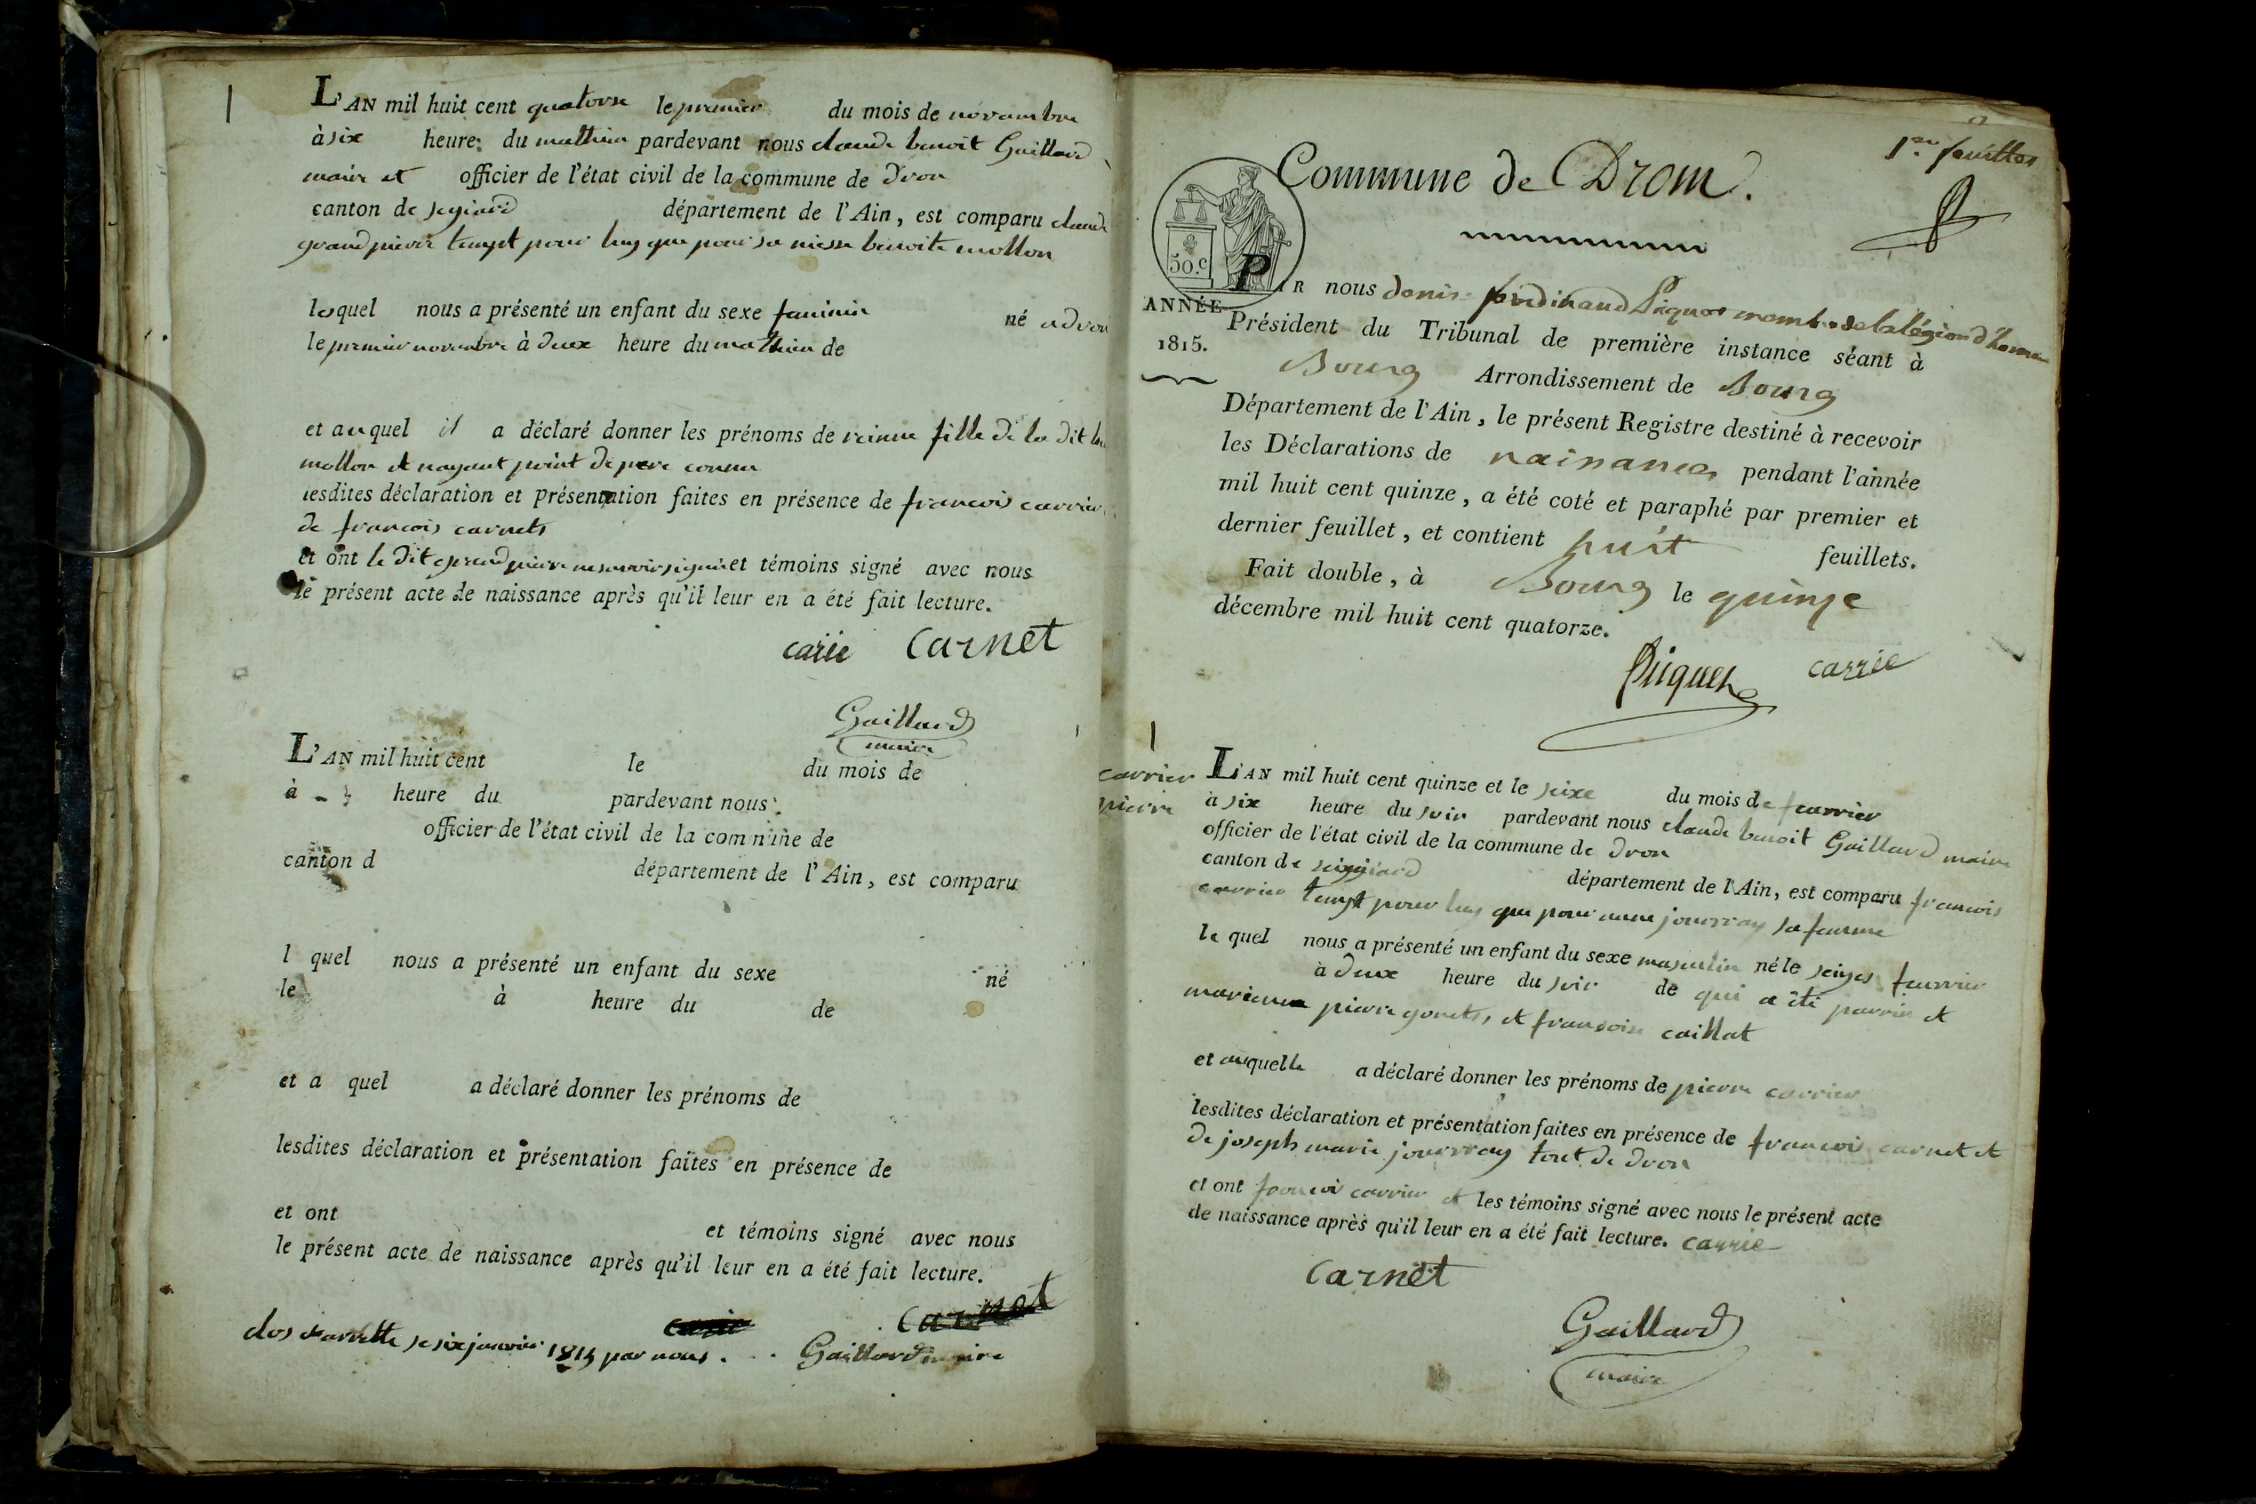 L'AN mil huit cent quatorse le premier du mois de novambre
à six heure du mathin pardevant nous claude benoit Gaillard
maire et officier de l'état civil de la commune de dron
canton de département de l'Ain, est comparu claude
grandpierre tempt pour luy que pour sa niesse benoite mollon
lequel nous a présenté un enfant du sexe feminin né a dron
le premier novembre à deux heure du mathin de
et auquel il a déclaré donner les prénoms de fille de la dit
mollon et nayant point de pere connu
lesdites déclaration et présentation faites en présence de francois carrier
de francois carnets
et ont le dit grandpierre ne savoir signé et témoins signé avec nous
le présent acte de naissance après qu'il leur en a été fait lecture.
carié Carnet
Gaillard
maire
L'AN mil huit cent le du mois de
à heure du pardevant nous
officier de l'état civil de la commune de
canton d département de l'Ain, est comparu
l quel nous a présenté un enfant du sexe né
le à heure du de
et a quel a déclaré donner les prénoms de
lesdites déclaration et présentation faites en présence de
et ont et témoins signé avec nous
le présent acte de naissance après qu'il leur en a été fait lecture.
Carnet
clos et arretté se six janvier par nous. Gaillard maire
1er feuillet
Commune de Drom.
50.c
ANNÉE
1815.
PAR nous denis ferdinand Piquet membre de la légion d'honneur
Président du Tribunal de première instance séant à
Bourg Arrondissement de Bourg
Département de l'Ain, le présent Registre destiné à recevoir
les Déclarations de naissances pendant l'année
mil huit cent quinze, a été coté et paraphé par premier et
dernier feuillet, et contient huit feuillets.
Fait double, à Bourg le quinze
décembre mil huit cent quatorze.
Piquet carrié
carrier
pierre
L'AN mil huit cent quinze et le seixe du mois de feuvrier
à six heure du soir pardevant nous claude benoit Gaillard maire
officier de l'état civil de la commune de dron
canton de département de l'Ain, est comparu francois
carrier tempt pour luy que pour anne jouvray sa femme
le quel nous a présenté un enfant du sexe masculin né le feuvrier
à deux heure du soir de qui a été parrin et
marienne pierre gonets, et fransoise caillat
et auquelle a déclaré donner les prénoms de pierre carrier
lesdites déclaration et présentation faites en présence de francois carnet et
de joseph marie jouvray tout de dron
et ont francois carrier et les témoins signé avec nous le présent acte
de naissance après qu'il leur en a été fait lecture. carrié
Carnet
Gaillard
maire